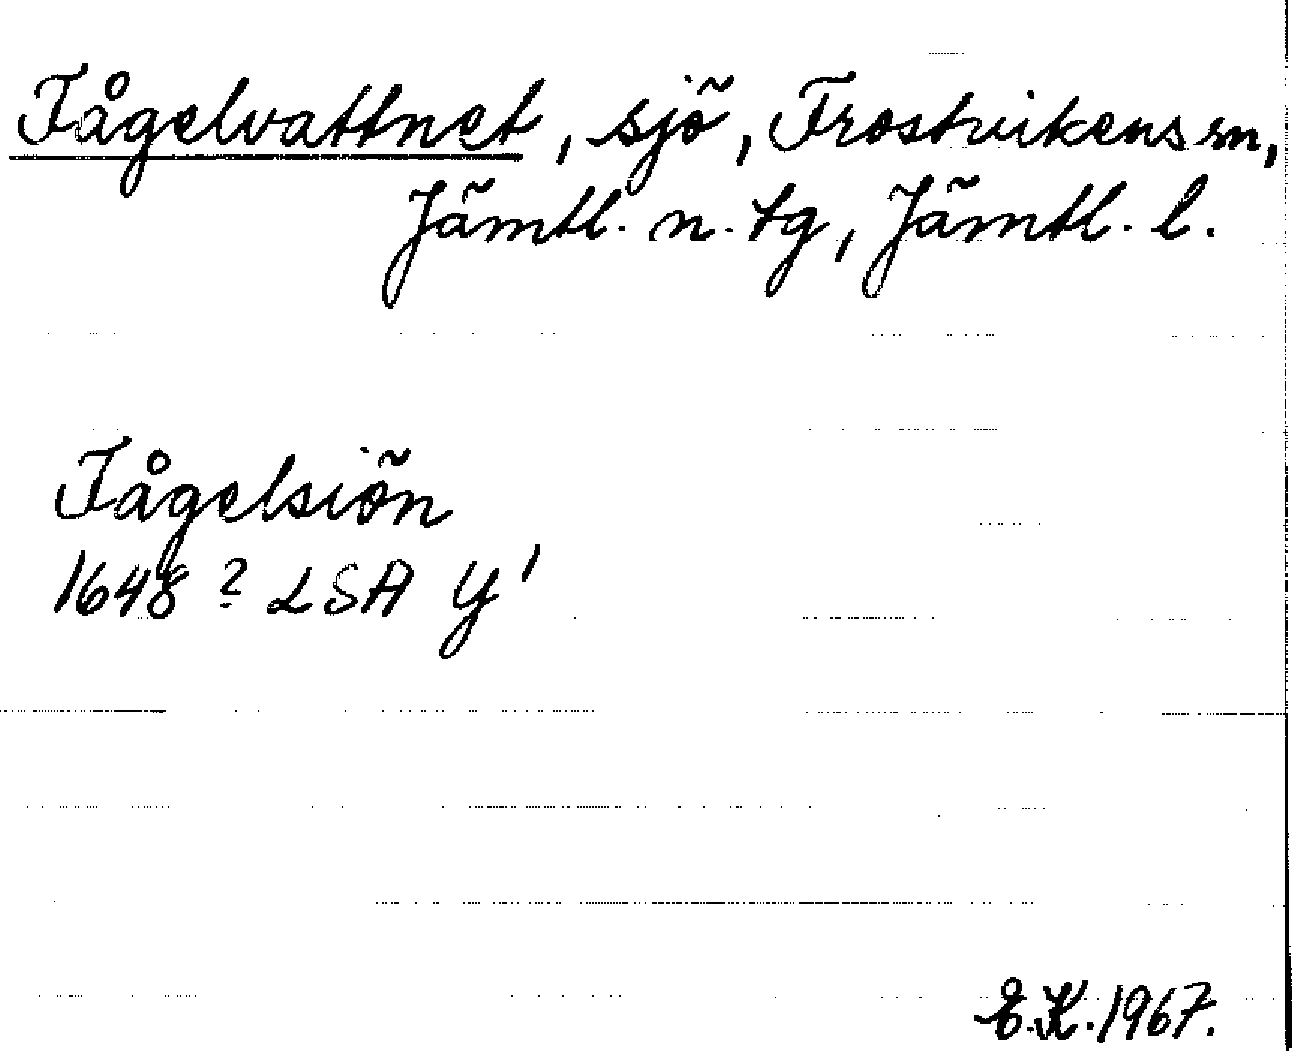 Fågelvattnet, sjö, Frostvikens sn,
Jämtl. n. tg, Jämtl. l.
Fågelsiön
1648? LSA Y1
E.K. 1967.